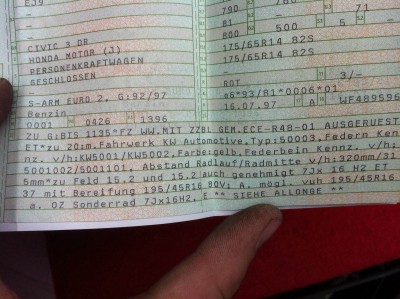 EJ9
790
780
71
81
800
500
5
CIVIC 3 DR
175/65R14 82S
HONDA MOTOR (J)
PERSONENKRAFTWAGEN
175/65R14 82S
GESCHLOSSEN
ROT
3/-
S-ARM EURO 2, G:92/97
e6*93/81*0006*01
Benzin
16.07.97
A
WF48959
0001
0426
1396
ZU G:BIS 1135*FZ WW.MIT ZZBL GEM.ECE-R48-01 AUSGERUEST
ET*zu 20:m.Fahrwerk KW Automotive,Typ:50003,Federn Kenn
nz. v/h:KW5001/KW5002,Farbe:gelb,Federbein Kennz. v/h:
5001002/5001101, Abstand Radlauf/Radmitte v/h:320mm/31
5mm*zu Feld 15.2 und 15.2 auch genehmigt 7Jx 16 H2 ET
37 mit Bereifung 195/45R16 80V; A. mögl. vuh 195/45R16
a. OZ Sonderrad 7Jx16H2, E ** SIEHE ALLONGE **